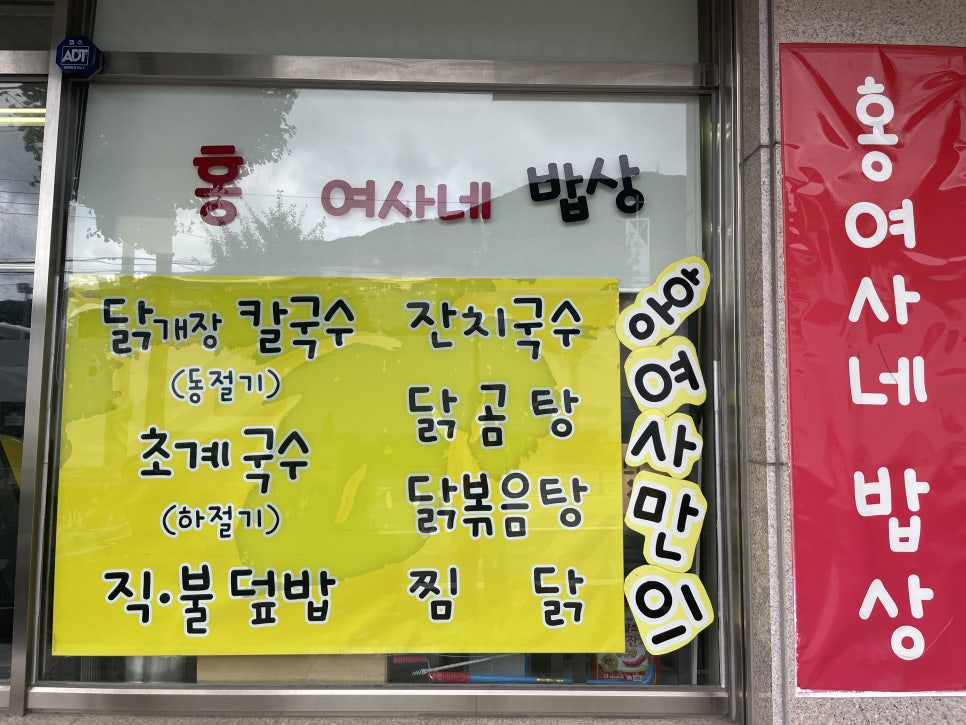 ADT
홍 여사네 밥상
닭개장 칼국수
(동절기)
초계국수
(하절기)
직·불덮밥
잔치국수
닭곰탕
닭볶음탕
찜닭
야여사만인
홍여사네 밥상